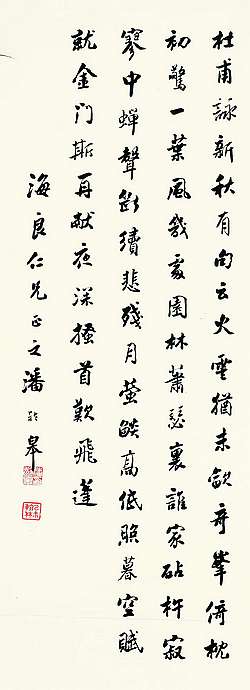 杜甫詠新秋有句云火雲猶未歛奇峯倚枕
初驚一葉風幾處園林蕭瑟裏誰家砧杵寂
寥中蟬聲斷續悲殘月螢燄高低照暮空賦
就金门期再献夜深搔首歎飛蓬
海良仁兄正之潘齡皋